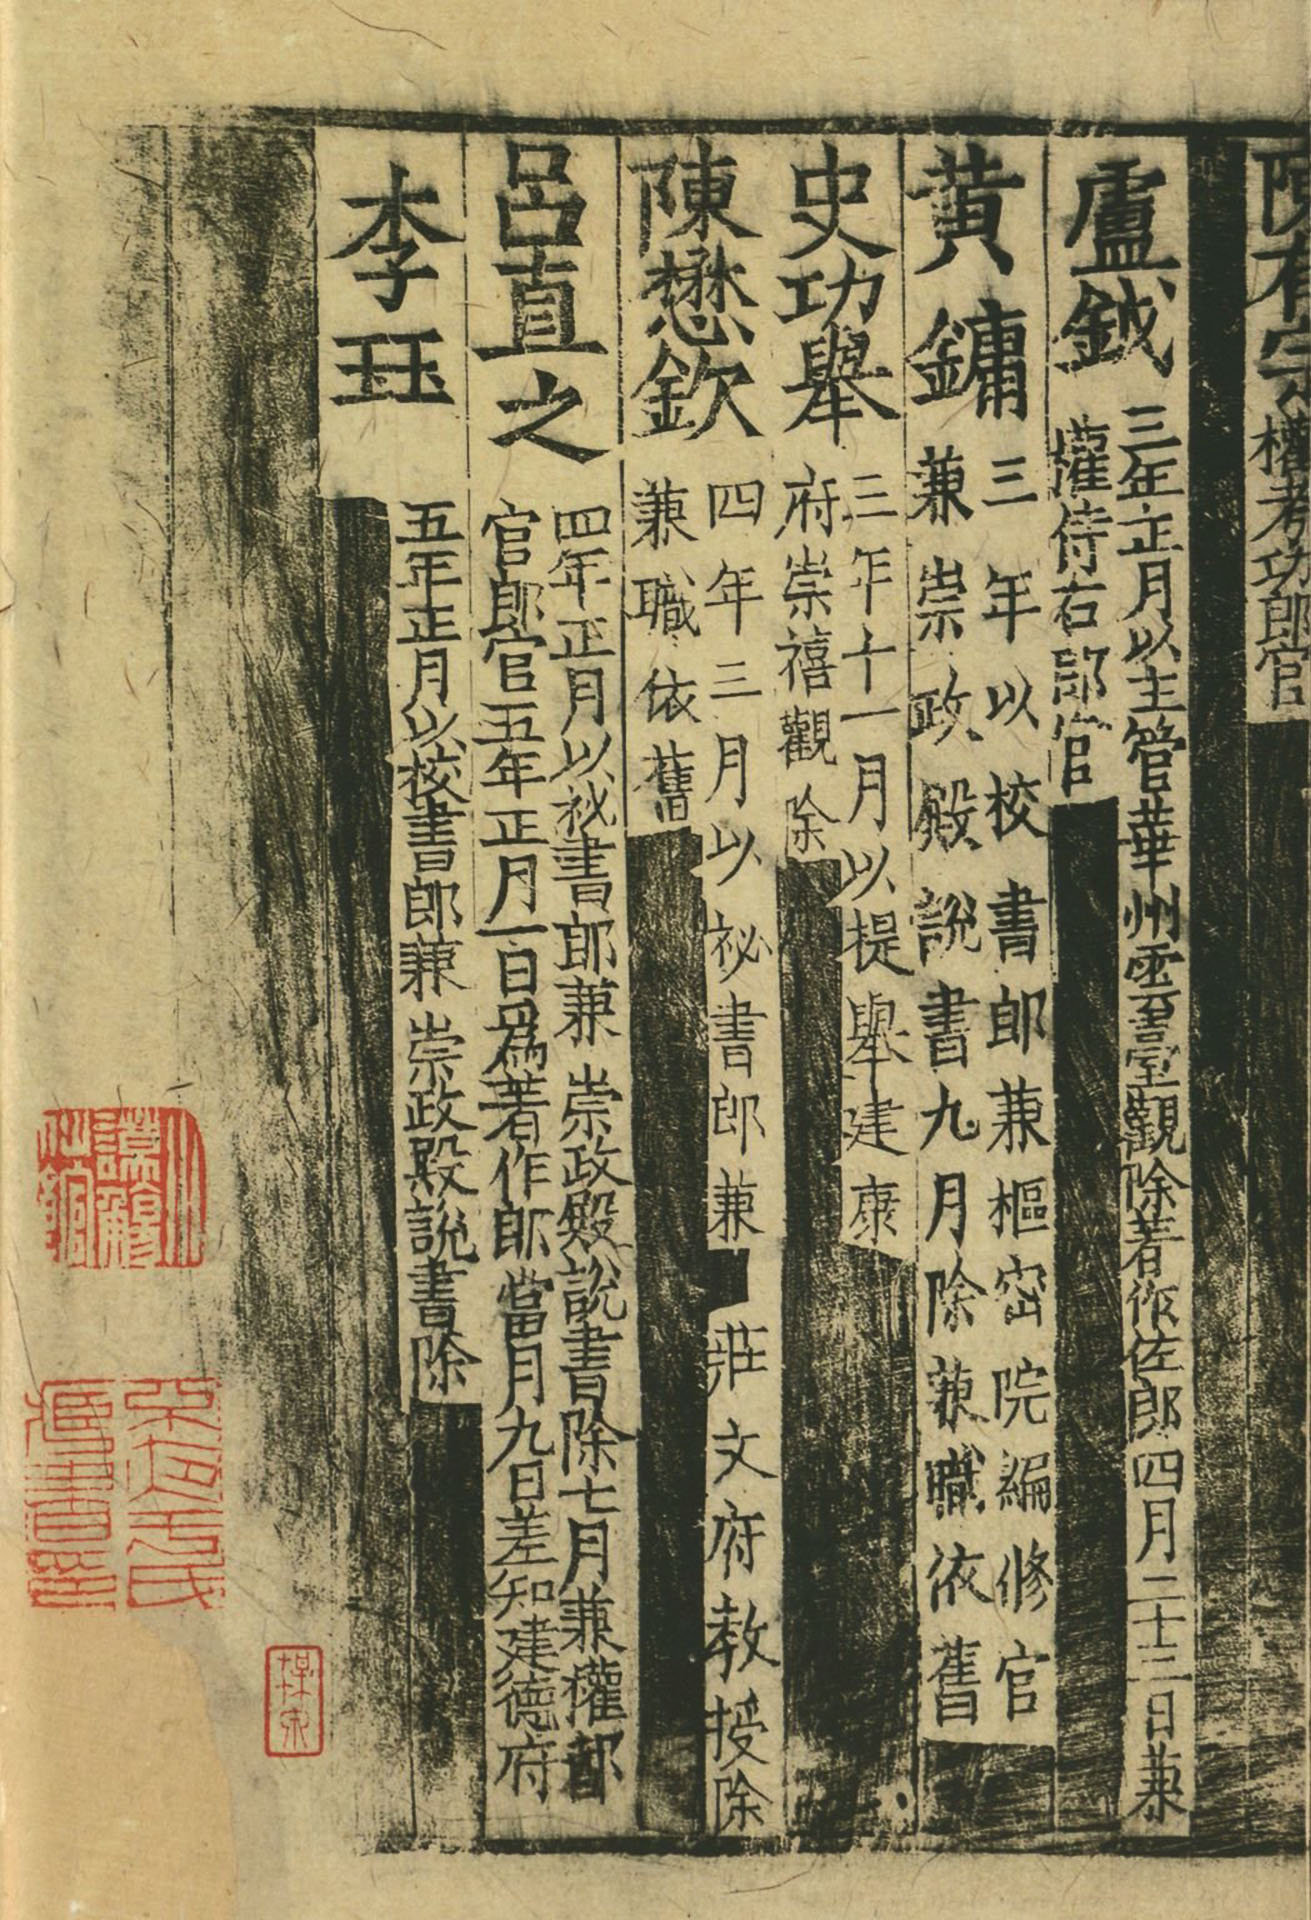 陳有宗
權考功郎官
盧鉞
三年正月以主管華州雲臺觀除著作佐郎四月二十三日兼
權侍右郎官
黃鏞
三年以校書郎兼樞密院編修官
兼崇政殿說書九月除兼職依舊
史功舉
三年十一月以提舉建康
府崇禧觀除
陳懋欽
四年三月以祕書郎兼 莊文府教授除
兼職依舊
呂直之
四年正月以祕書郎兼崇政殿說書除七月兼權都
官郎官五年正月一日爲著作郎當月九日差知建德府
李珏
五年正月以校書郎兼崇政殿說書除